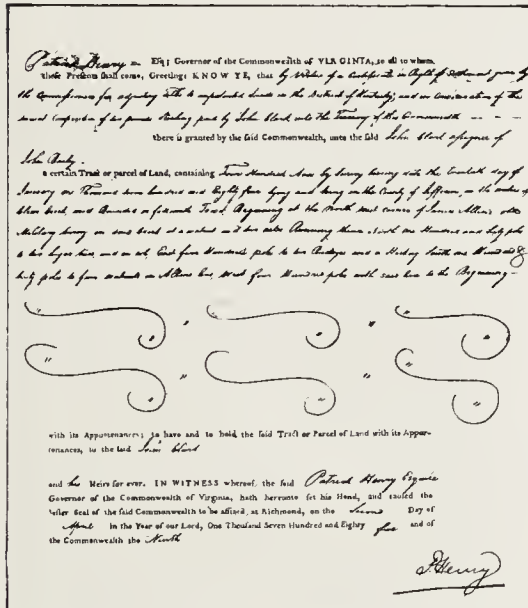 Patrick Henry Esq; Governor of the Commonwealth of VIRGINIA, to all to whom
these Presents shall come, Greeting: KNOW YE, that by Virtue of a Certificate in Right of Settlement given by
the Commissioners for adjusting Titles to unpatented Lands in the District of Kentucky, and in Consideration of the
ancient Composition of two pounds Sterling paid by John Clark into the Treasury of this Commonwealth
there is granted by the said Commonwealth, unto the said John Clark assignee of
John
a certain Tract or parcel of Land, containing Four Hundred Acres by Survey bearing date the twentieth day of
January one Thousand seven hundred and Eighty four lying and being in the County of Jefferson, on the waters of
and Bounded as followeth Towit, Beginning at the North west corner of James
Military Survey on said Running thence North one Hundred and Sixty poles
to East four Hundred poles to two and a South one Hundred &
Sixty poles to four line, West four Hundred poles with said line to the Beginning
with its Appurtenances; to have and to hold the said Tract or Parcel of Land with its Appur-
tenances, to the said John Clark
and his Heirs for ever. IN WITNESS whereof, the said Patrick Henry Esquire
Governor of the Commonwealth of Virginia, hath hereunto set his Hand, and caused the
lesser Seal of the said Commonwealth to be affixed, at Richmond, on the Second Day of
April in the Year of our Lord, One Thousand Seven Hundred and Eighty five and of
the Commonwealth the Ninth
P. Henry